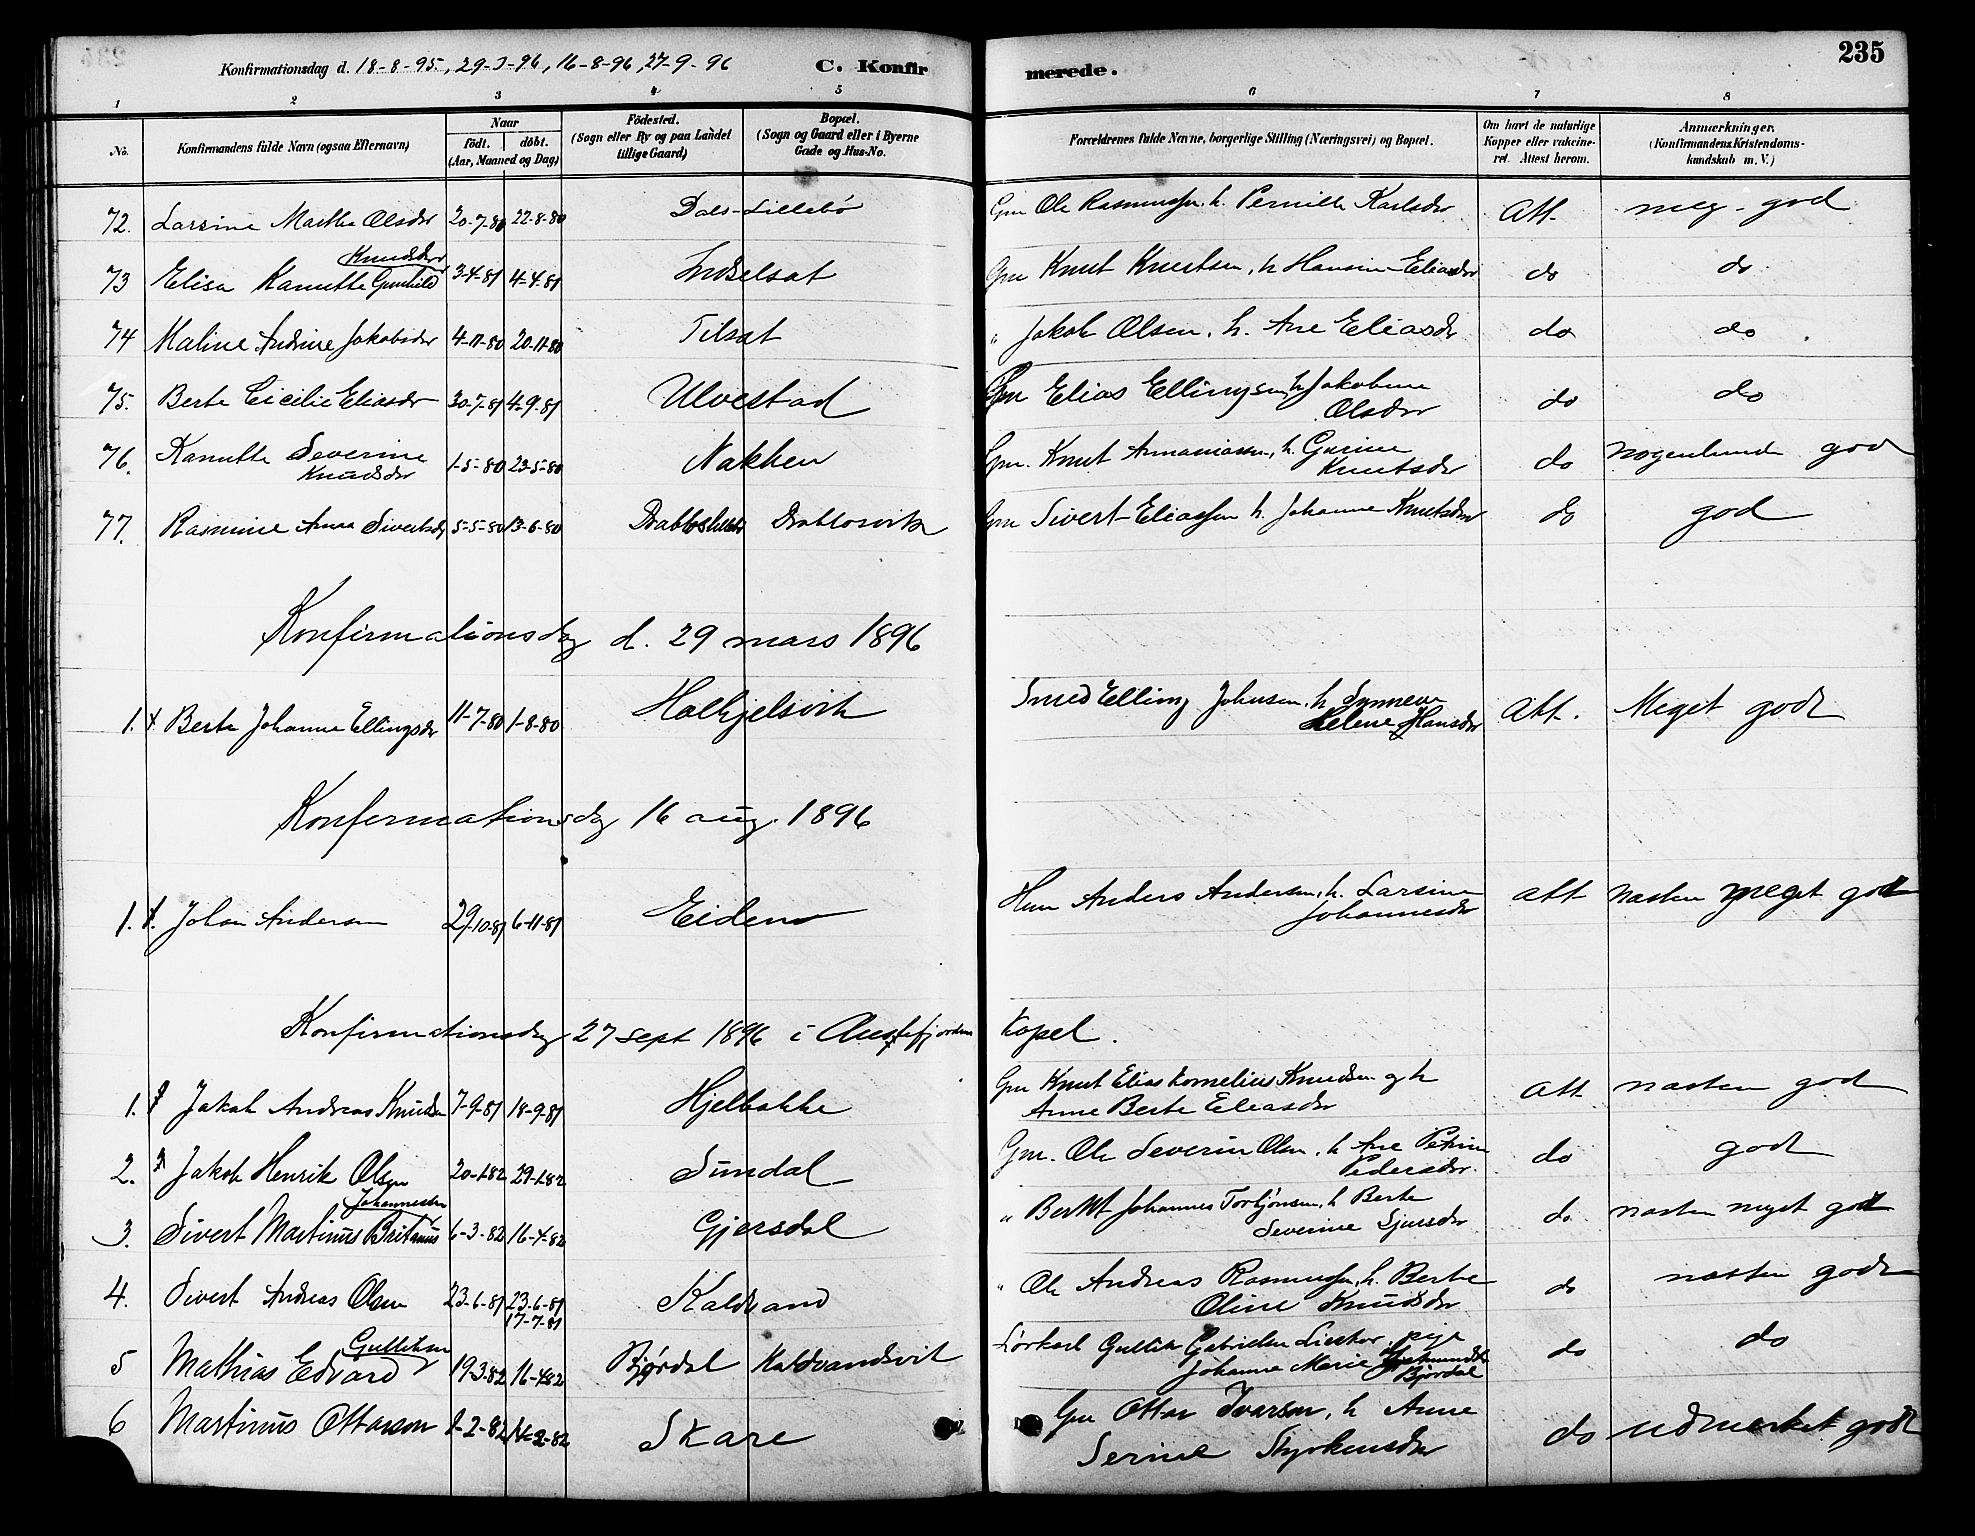 235
Konfirmationsdag d. 18-8-95, 29-3-96, 16-8-96, 27-9-96 C. Konfir merede.
1 2 3 4 5 6 7 8
No. Konfirmandens fulde Navn (ogsaa Efternavn) Naar födt. döbt. (Aar, Maaned og Dag) Födested. (Sogn eller By og paa Landet tillige Gaard) Bopæl. (Sogn og Gaard eller i Byerne Gade og Hus-No. Forældrenes fulde Navne, borgerlige Stilling (Næringsvei) og Bopæl. Om havt de naturlige Kopper eller vakcineret. Attest herom. Anmærkninger. (Konfirmandens Kristendomskundskab m. V.)
72. Larsine Marthe Olsdr 20-7-80 22-8-80 Dals-Lillebø Gm Ole Rasmussen, h. Pernille Karlsdr Att. meg. god
73 Elisa Kanutte Gunhild Knudsdr 3-4-81 4-4-81 Indselsæt Gm Knut Knutsen, h Hansine Eliasdr do do
74 Maline Andrine Jakobsdr 4-11-80 20-11-80 Tilsæt " Jakob Olsen, h. Ane Eliasdr do do
75. Berte Cicilie Eliasdr 30-7-81 4-9-81 Ulvestad Gm Elias Ellingsen, h Jakobine Olsdr do do
76. Kanutte Severine Knudsdr 1-5-80 23-5-80 Nakken Gm. Knut Annaniassen, h. Gurine Knutsdr do nogenlunde god
77. Rasmine Anna Sivertsdr 5-5-80 13-6-80 Drabløsvik Gm Sivert Eliassen h. Johanne Knutsdr do god
Konfirmationsdag d. 29 mars 1896
1. Berte Johanne Ellingsdr 11-7-80 1-8-80 Halkjelsvik Smed Elling Johnsen, h Synneve Helene Hansdr Att. Meget godt
Konfermationsdag 16 aug. 1896
1. Johan Andersen 29-10-81 6-11-81 Eidem Hm Anders Andersen, h. Larsine Johannesdr att næsten meget godt
Konfirmationsdag 27 sept 1896 i Austefjorden Kapel.
1. Jakob Andreas Knudsen 7-9-81 18-9-81 Hjelbakke Gm Knut Elias Kornelius Knudsen og h Anne Berte Eleasdr att næsten godt
2. Jakob Henrik Olsen 20-1-82 29-1-82 Sundal Gm. Ole Severin Olsen, h Ane Petrine Pedersdr. do godt
3. Sivert Martinus Britanus Johannessen 6-3-82 16-4-82 Gjersdal " Johannes Torbjønsen, h Berte Severine Sjursdr do næsten meget godt
4. Sivert Andreas Olsen 23-6-81 23-6-81 17-7-81 Kaldvand " Ole Andreas Rasmussen, h. Berte Oline Knudsdr do næsten godt
5 Mathias Edvard Gulliksen 19-3-82 16-4-82 Bjørdal Kaldvandsvik Gullik Gabrielsen pige Johanne Marie Bjørdal do do
6 Martinus Ottarson 1-2-82 14-2-82 Skare Gm Ottar Ivarson, h Anne Serine Styrkensdr do udmærket godt